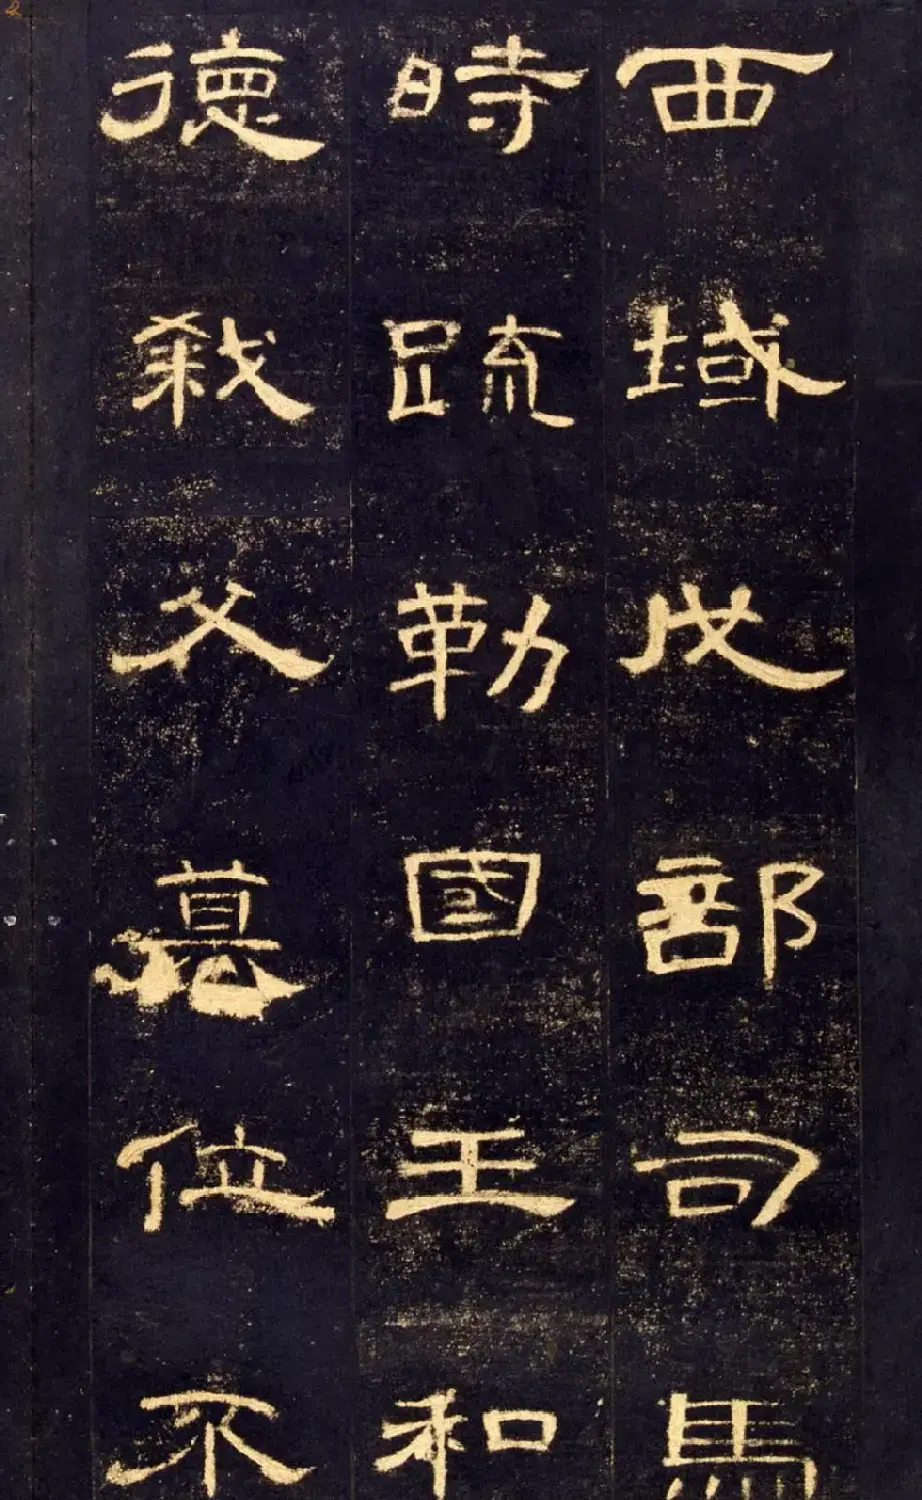 西域戊部司馬
時疏勒國王和
德弒父篡位不